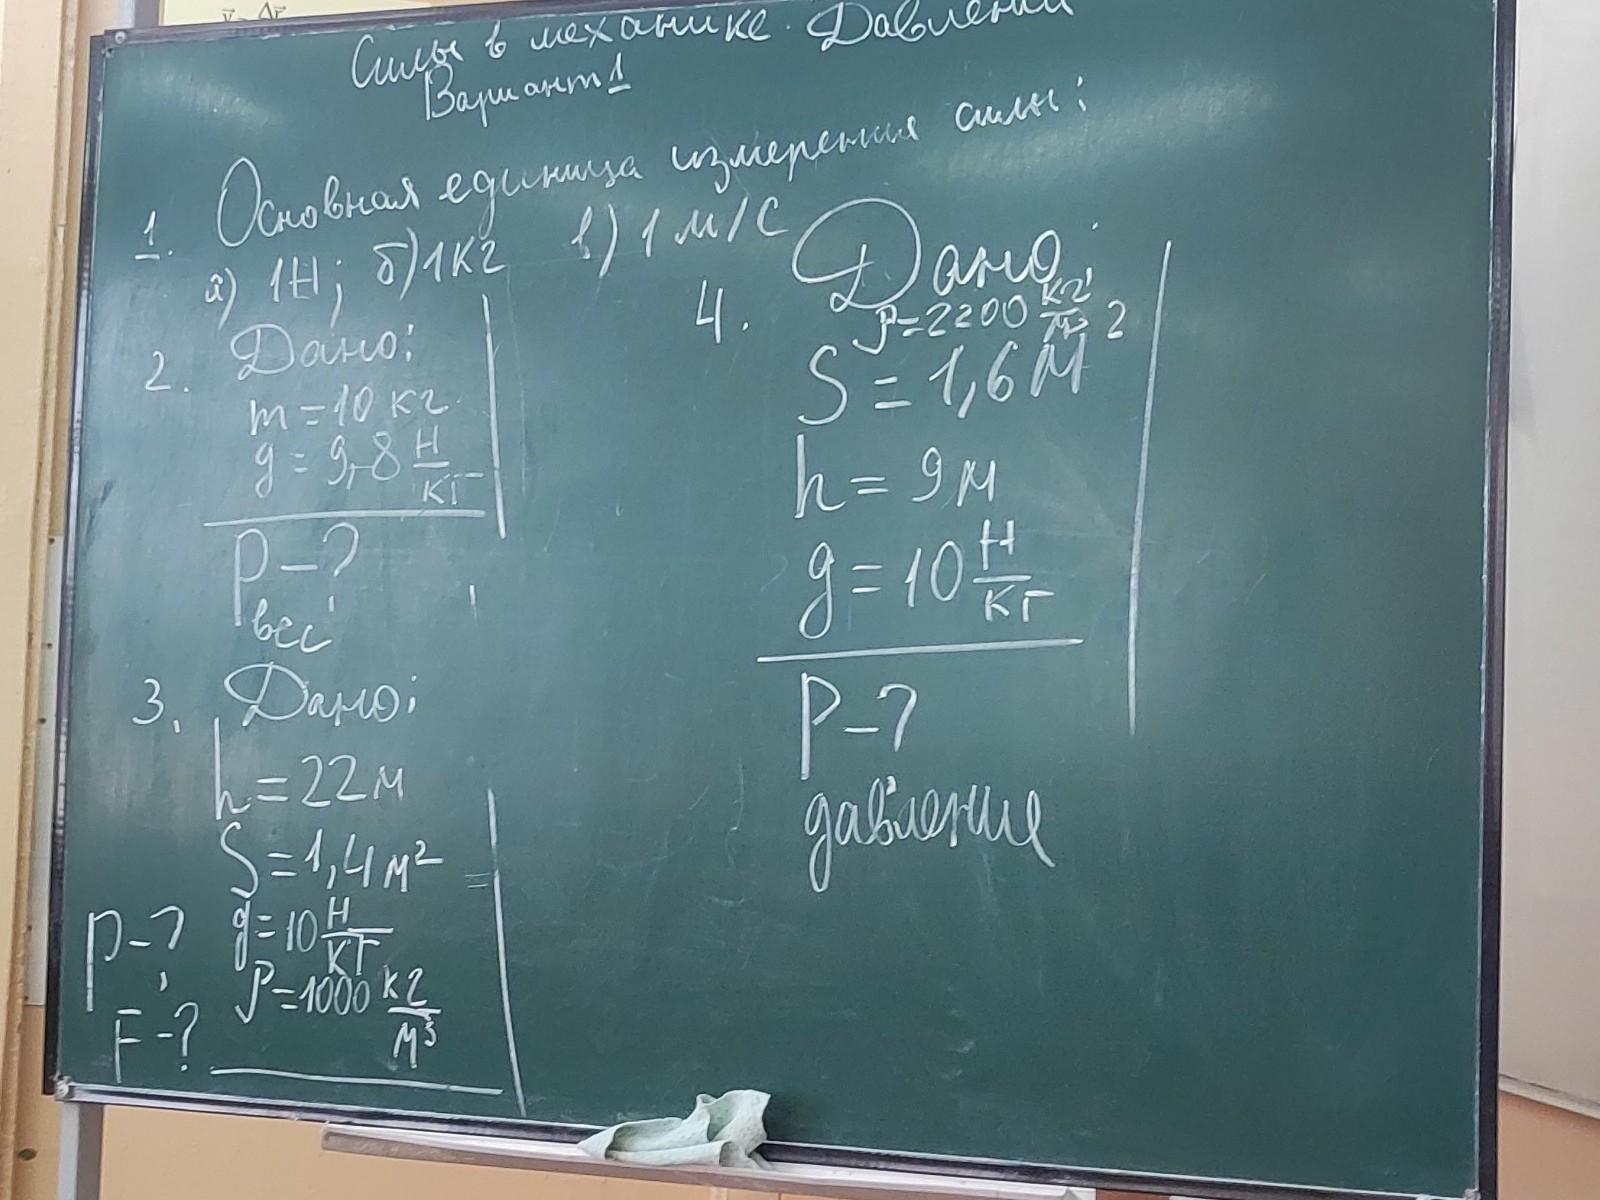 Силы в механике. Давление
Вариант 1
1. Основная единица измерения силы:
а) 1Н; б) 1кг в) 1 м/с
2. Дано:
m = 10 кг
g = 9,8 Н/кг
P - ?
вес
3. Дано:
h = 22 м
S = 1,4 м²
g = 10 Н/кг
ρ = 1000 кг/м³
P - ?,
F - ?
4. Дано:
ρ = 2200 кг/м³
S = 1,6 м²
h = 9 м
g = 10 Н/кг
P - ?
давление